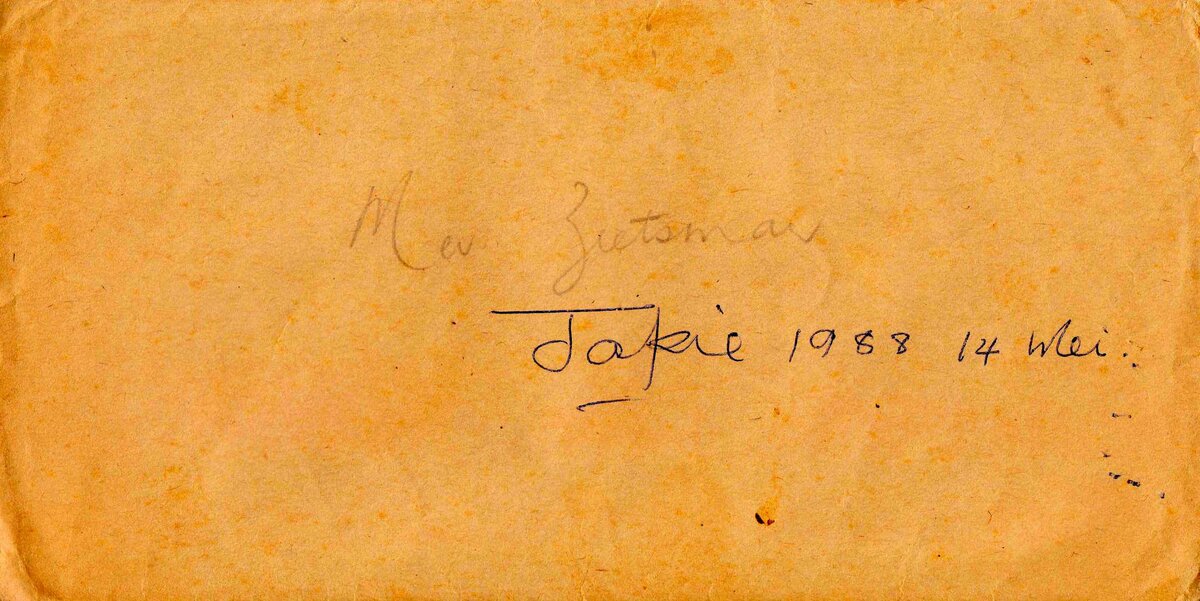 Mev Zietsman
Jakie 1988 14 Mei.